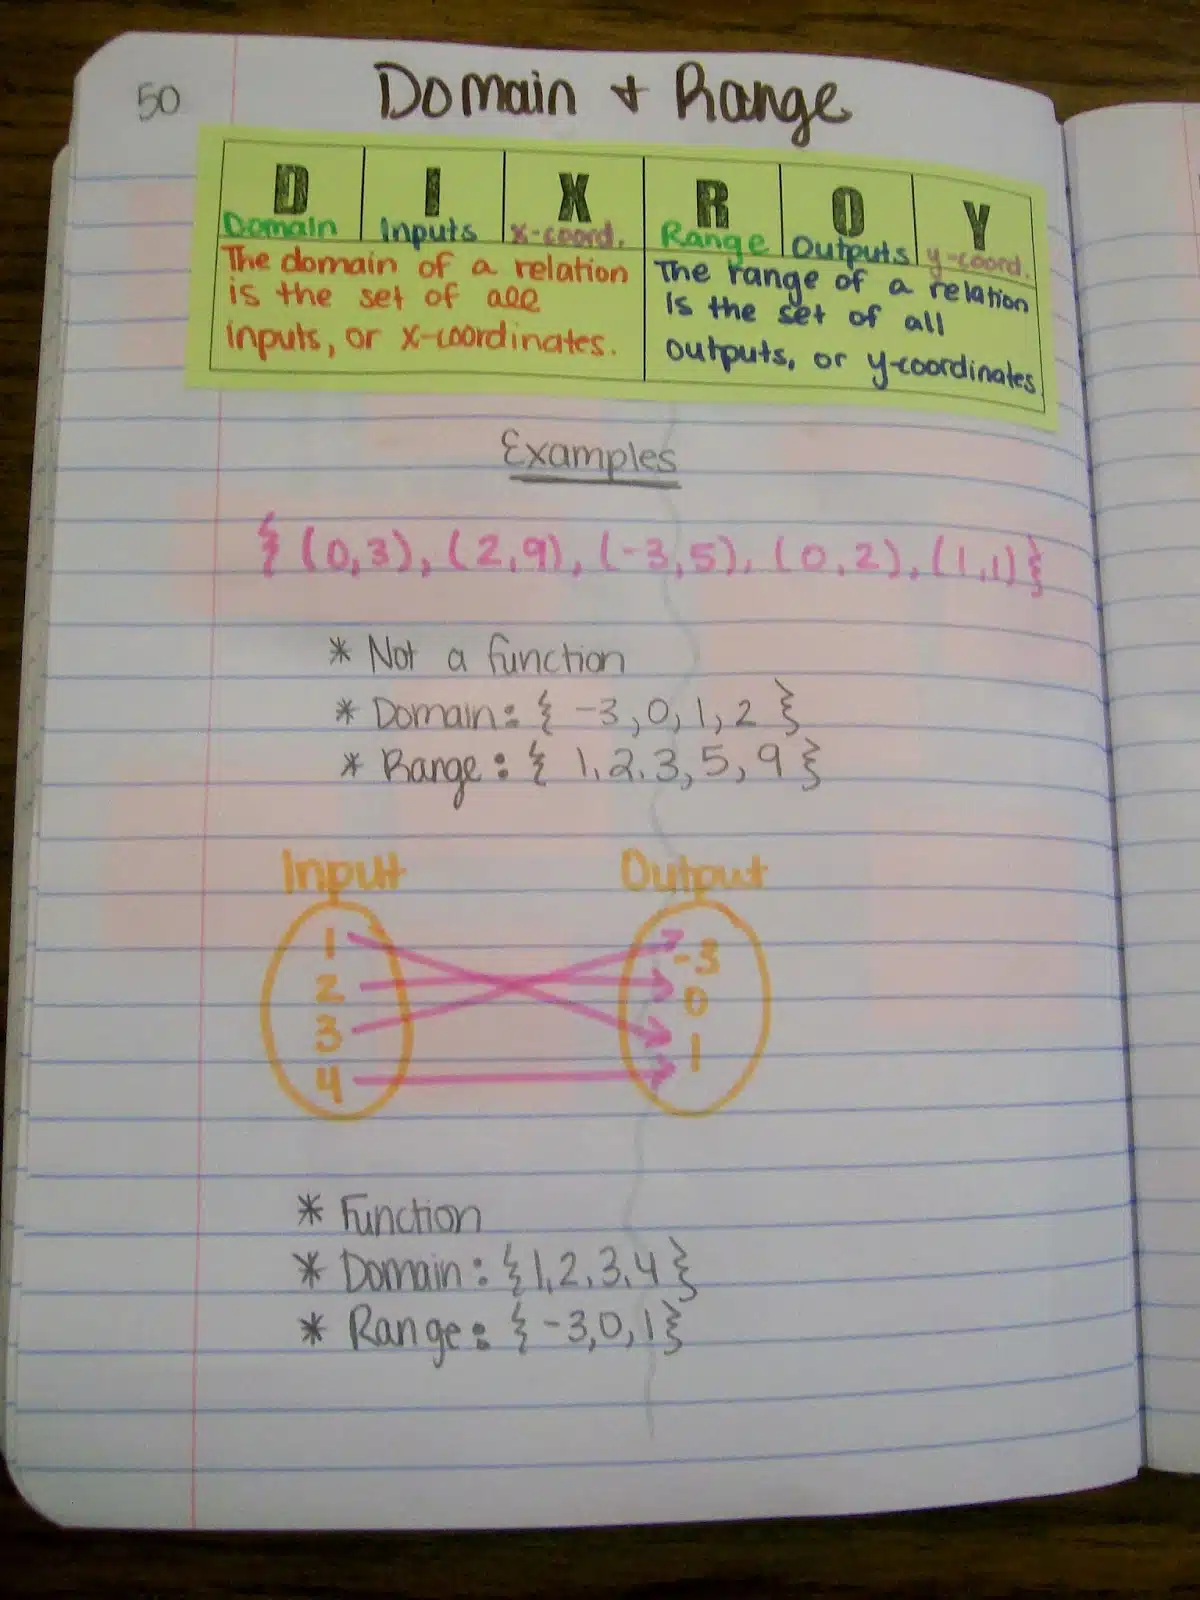 50
Domain + Range
D I X R O Y
Domain Inputs x-coord. Range Outputs y-coord.
The domain of a relation
is the set of all
inputs, or x-coordinates.
The range of a relation
is the set of all
outputs, or y-coordinates
Examples
{(0,3), (2,9), (-3,5), (0,2), (1,1)}
* Not a function
* Domain: { -3, 0, 1, 2 }
* Range: { 1, 2, 3, 5, 9 }
Input Output
1 -3
2 0
3 1
4
* Function
* Domain: {1, 2, 3, 4}
* Range: { -3, 0, 1}